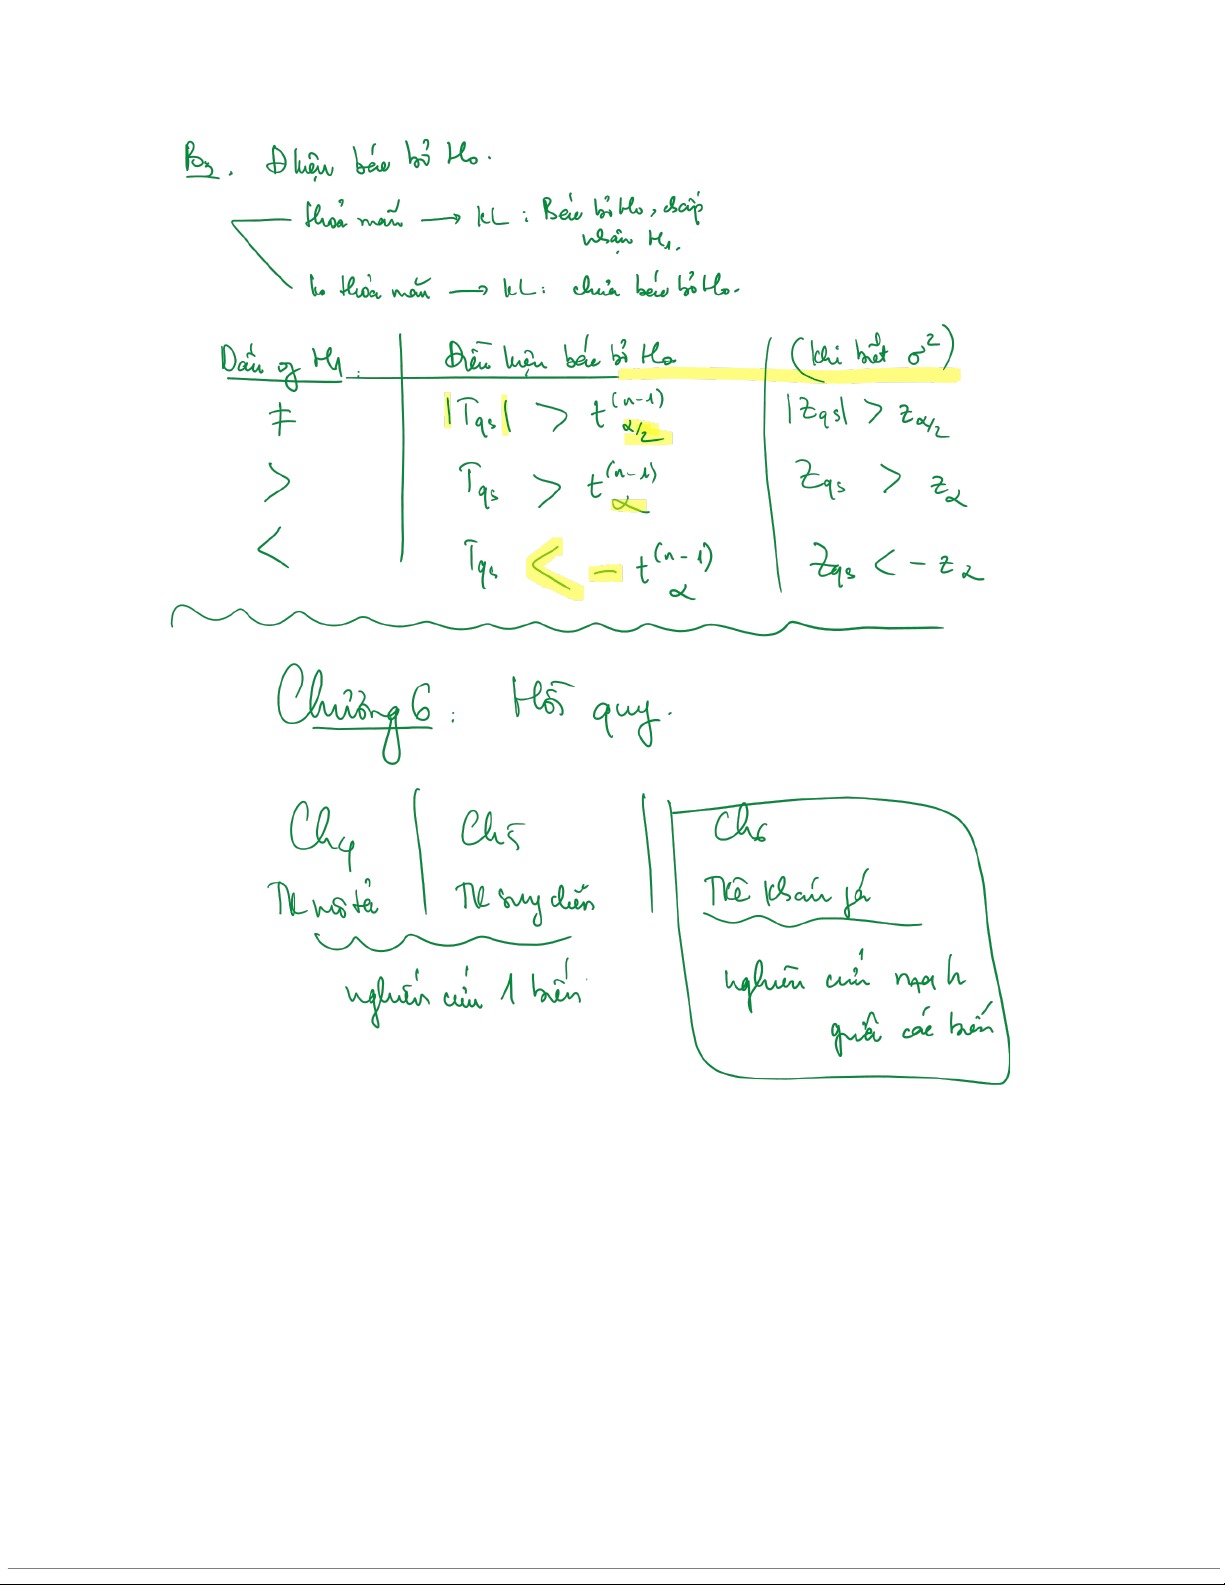 B3. Đkiện bác bỏ Ho.
thoả mãn → KL: Bác bỏ Ho, chấp
nhận H1.
ko thoả mãn → KL: chưa bác bỏ Ho.
Dấu of H1: Điều kiện bác bỏ Ho (khi biết σ²)
≠ |Tqs| > t^(n-1)_α/2 |Zqs| > z_α/2
> Tqs > t^(n-1)_α Zqs > z_α
< Tqs < - t^(n-1)_α Zqs < - z_α
Chương 6: Hồi quy.
Ch4 Ch5 Ch6
TK mô tả TK suy diễn TKê khám phá
nghiên cứu 1 biến
nghiên cứu mqh
giữa các biến